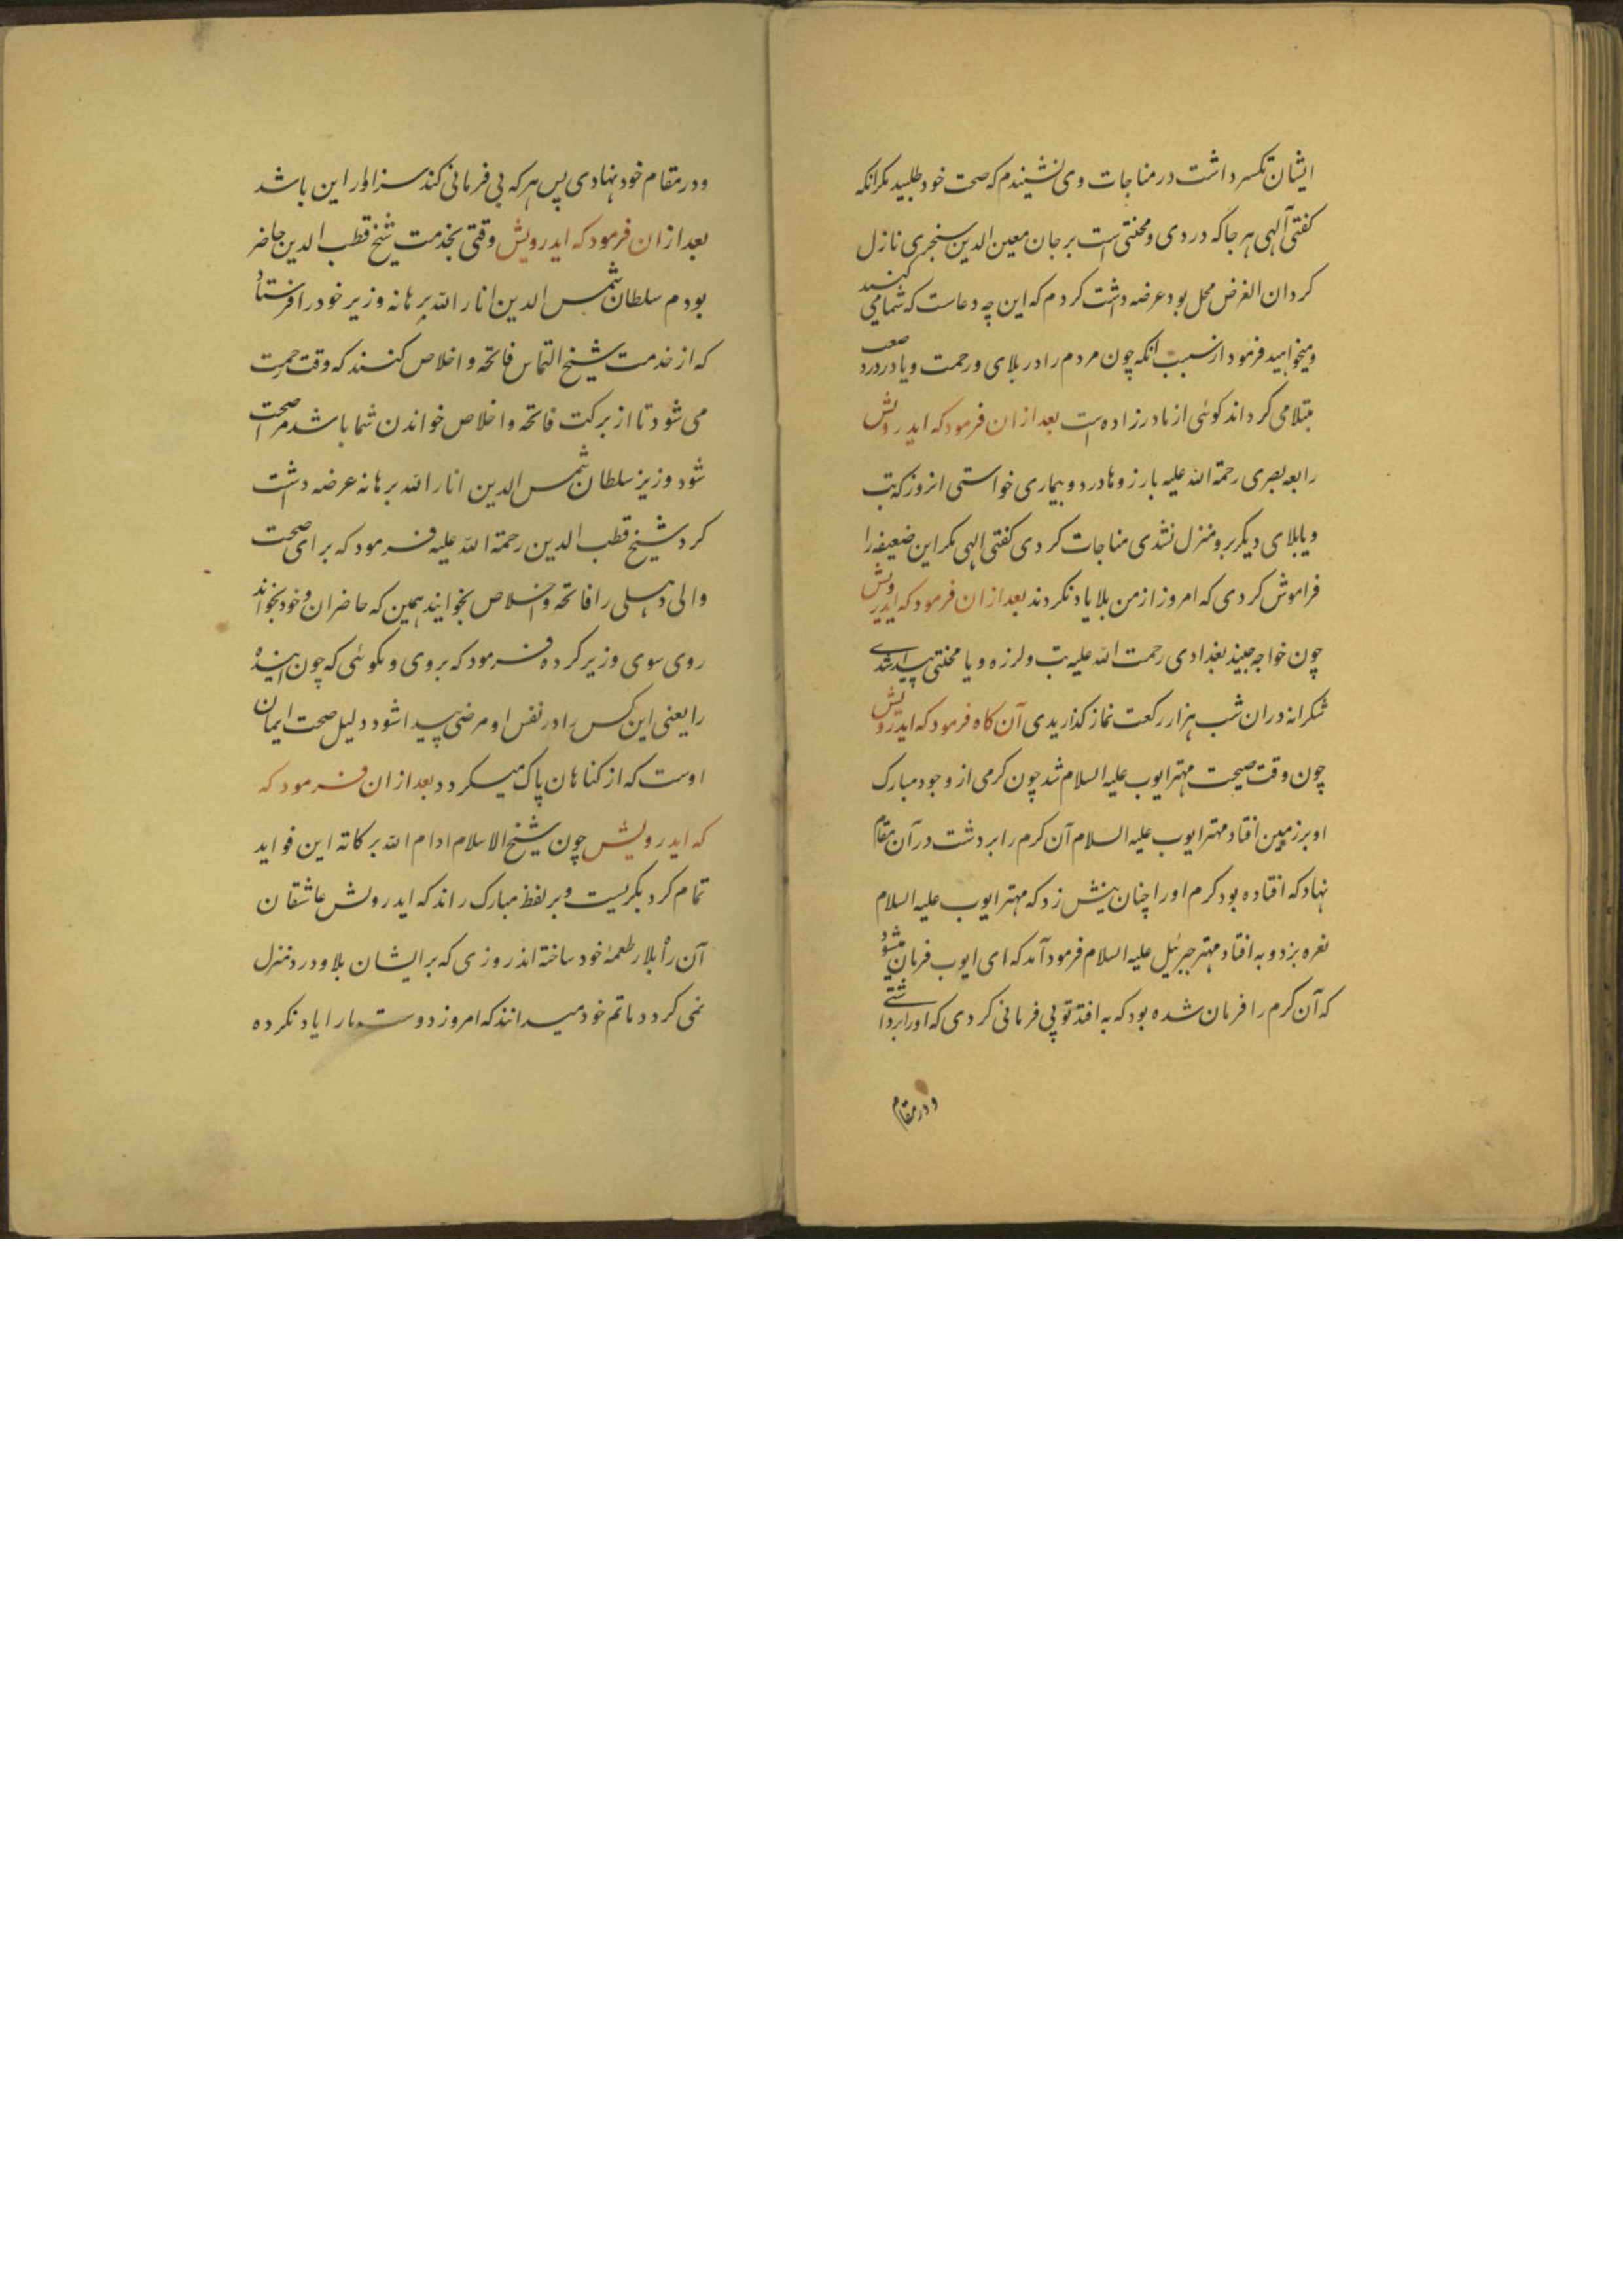 ایشان تکسر داشت در مناجات وی نشنیدم که صحت خود طلبید مکر انکه
کفتی آلهی هرجا که دردی و محنتی است بر جان معین الدین سنجری نازل
کردان الغرض محل بود عرضه داشت کردم که این چه دعاست که شمامی کنید
و میخواهید فرمود از سبب انکه چون مردم را در بلای و رحمت و یا در درد صعب
مبتلا می کرداند کوئی از مادر زاده است بعد ازان فرمود که ایدرویش
رابعه بصری رحمة الله علیه بارزوها درد و بیماری خواستی انروز که تب
و یا بلای دیکر برو منزل نشدی مناجات کردی کفتی الهی مکر این ضعیفه را
فراموش کردی که امروز از من بلا یاد نکردند بعد ازان فرمود که ایدرویش
چون خواجه جنید بغدادی رحمت الله علیه تب و لرزه و یا محنتی پیدا شدی
شکرانه دران شب هزار رکعت نماز کذاریدی آن کاه فرمود که ایدرویش
چون وقت صحیت مهتر ایوب علیه السلام شد چون کرمی از وجود مبارک
او بر زمین افتاد مهتر ایوب علیه السلام آن کرم را بر دشت در آن مقام
نهاد که افتاده بود کرم اورا چنان نیش زد که مهتر ایوب علیه السلام
نعره بزد و به افتاد مهتر جبرئیل علیه السلام فرود آمد که ای ایوب فرمان میشود
که آن کرم را فرمان شده بود که به افتد تو بی فرمانی کردی که اورا برداشتی
و در مقام
و در مقام خود نهادی پس هرکه بی فرمانی کند سزاوار این باشد
بعد ازان فرمود که ایدرویش وقتی بخدمت شیخ قطب الدین حاضر
بودم سلطان شمس الدین انار الله برهانه وزیر خود را فرستاد
که از خدمت شیخ التماس فاتحه و اخلاص کنند که وقت
می شود تا از برکت فاتحه و اخلاص خواندن شما باشد صحت
شود وزیر سلطان شمس الدین انار الله برهانه عرضه داشت
کرد شیخ قطب الدین رحمة الله علیه فرمود که برای صحت
والی دهلی را فاتحه و اخلاص بخوانید همین که حاضران و خود بخواند
روی سوی وزیر کرده فرمود که بروی و بکوئی که چون بنده
را یعنی این کس را در نفس او مرضی پیدا شود دلیل صحت ایمان
اوست که از کناهان پاک میکردد بعد ازان فرمود که
که ایدرویش چون شیخ الاسلام ادام الله برکاته این فواید
تمام کرد بکریست و بر لفظ مبارک راند که ایدرویش عاشقان
آن را بلا طعمهٔ خود ساخته اند روزی که بر ایشان بلا و درد منزل
نمی کردد ماتم خود میدانند که امروز دوست مارا یاد نکرده